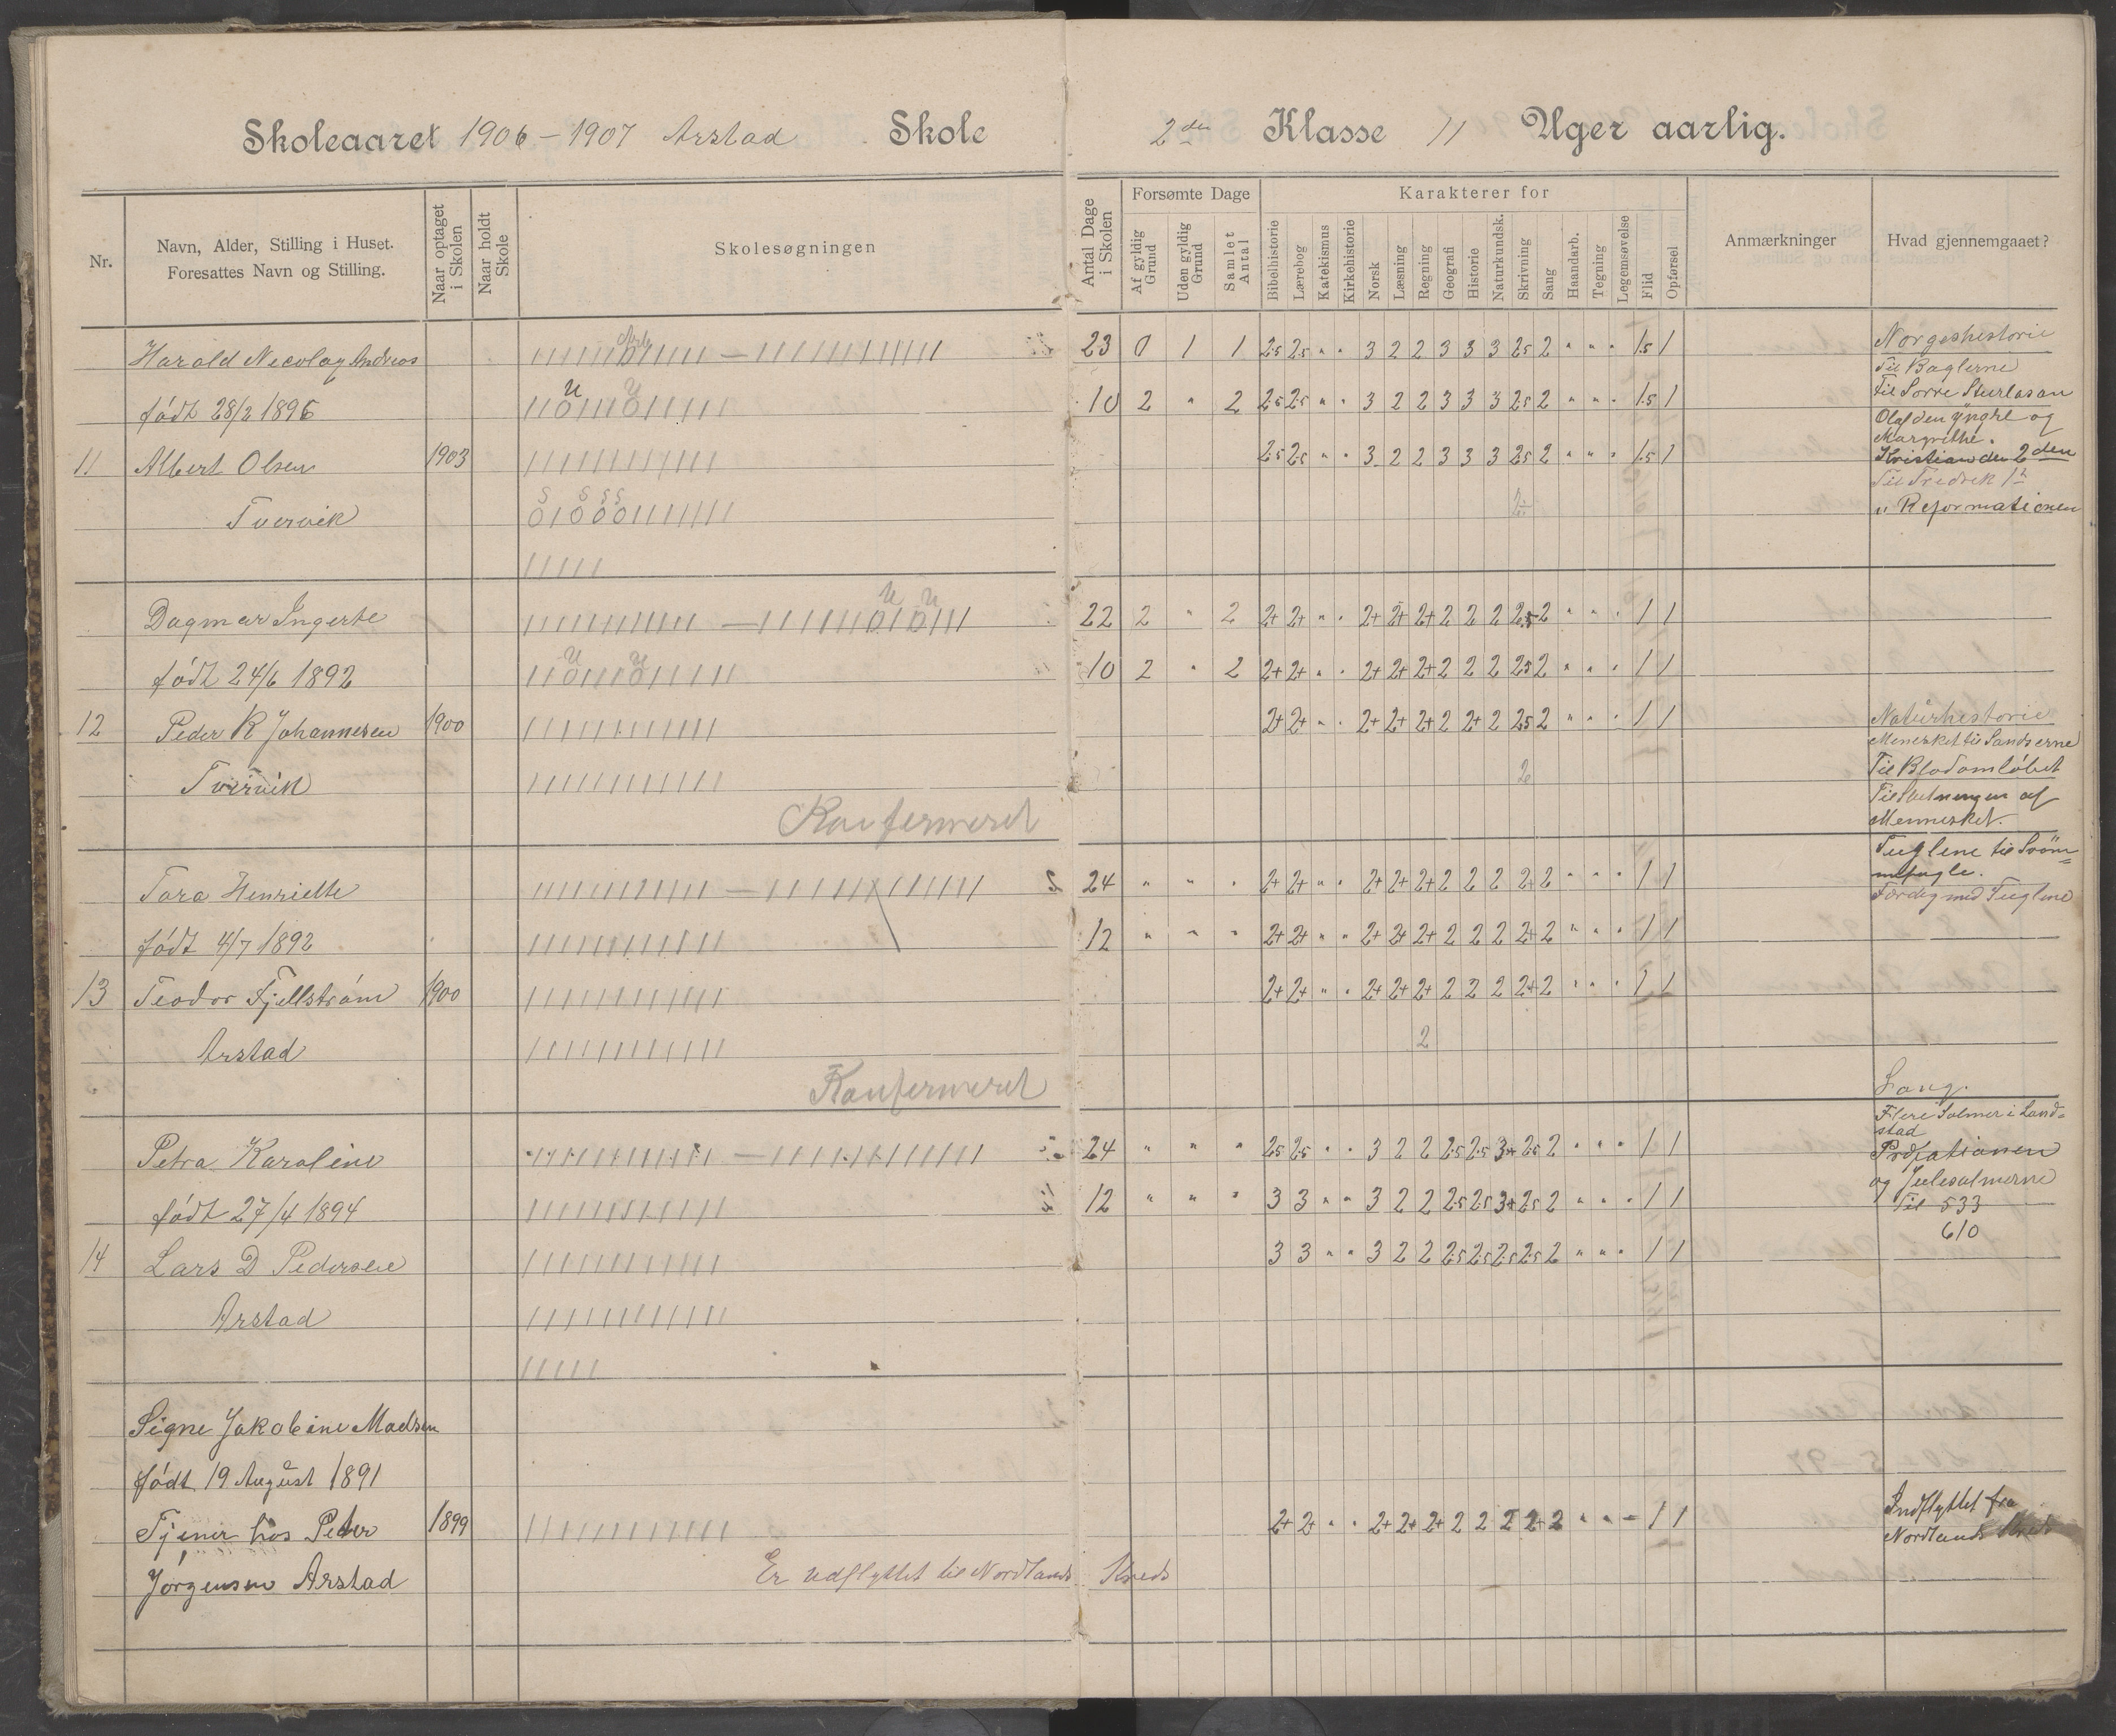 Skoleaaret 1906-1907 Arstad Skole 2den Klasse 11 Uger aarlig.
Nr.
Navn, Alder, Stilling i Huset.
Foresattes Navn og Stilling.
Naar optaget i Skolen
Naar holdt Skole
Skolesøgningen
Antal Dage i Skolen
Forsømte Dage
Af gyldig Grund
Uden gyldig Grund
Samlet Antal
Karakterer for
Bibelhistorie
Lærebog
Katekismus
Kirkehistorie
Norsk
Læsning
Regning
Geografi
Historie
Naturkundsk.
Skrivning
Sang
Haandarb.
Tegning
Legemsøvelse
Flid
Opførsel
Anmærkninger
Hvad gjennemgaaet?
Harald Necolay Andreas 23 0 1 1 2.5 2.5 " " 3 2 2 3 3 3 2.5 2 " " " 1.5 1
født 28/2 1896 10 2 " 2 2.5 2.5 " " 3 2 2 3 3 3 2.5 2 " " " 1.5 1
11 Albert Olsen 1903 2.5 2.5 " " 3 2 2 3 3 3 2.5 2 " " " 1.5 1
Tvervik
Norgeshistorie
Til Baglerne
til Snorre Sturlasan
Olaf den Yngre og
Margrethe.
Kristian den 2den
Til Fredrek 1ste
" Reformationen
Dagmar Ingerte 22 2 " 2 2+ 2+ " " 2+ 2+ 2+ 2 2 2 2.5 2 " " " 1 1
født 24/6 1892 10 2 " 2 2+ 2+ " " 2+ 2+ 2+ 2 2 2 2.5 2 " " " 1 1
12 Peder R Johannesen 1900 2+ 2+ " " 2+ 2+ 2+ 2 2+ 2 2.5 2 " " " 1 1
Tvervik 2
Konfermeret
Naturhistorie
Menesket til Sandserne
Til Blodomløbet
Til Slutningen af
Mennesket.
Fuglene til Svöm=
mefugle.
Færdig med Fuglene
Tora Henriette 24 " " " 2+ 2+ " " 2+ 2+ 2+ 2 2 2 2+ 2 " " " 1 1
født 4/7 1892 12 " " " 2+ 2+ " " 2+ 2+ 2+ 2 2 2 2+ 2 " " " 1 1
13 Teodor Fjellstrøm 1900 2+ 2+ " " 2+ 2+ 2+ 2 2 2 2+ 2 " " " 1 1
Arstad 2
Konfermeret
Sang.
Flere Salmer i Land=
stad
og Julesalmerne
Til 533
610
Petra Karoline 24 " " " 2.5 2.5 " " 3 2 2 2.5 2.5 3+ 2.5 2 " " " 1 1
født 27/4 1894 12 " " " 3 3 " " 3 2 2 2.5 2.5 3+ 2.5 2 " " " 1 1
14 Lars D Pedersen 3 3 " " 3 2 2 2.5 2.5 2.5 2.5 2 " " " 1 1
Arstad
Signe Jakobine Madsen
født 19 August 1891
Tjener hos Peder 1899 2+ 2+ " " 2+ 2+ 2+ 2 2 2 2+ 2 " " - 1 1
Jørgensen Arstad
Er udflyttet til Nordlands Kreds
Indflyttet fra
Nordlands Kreds